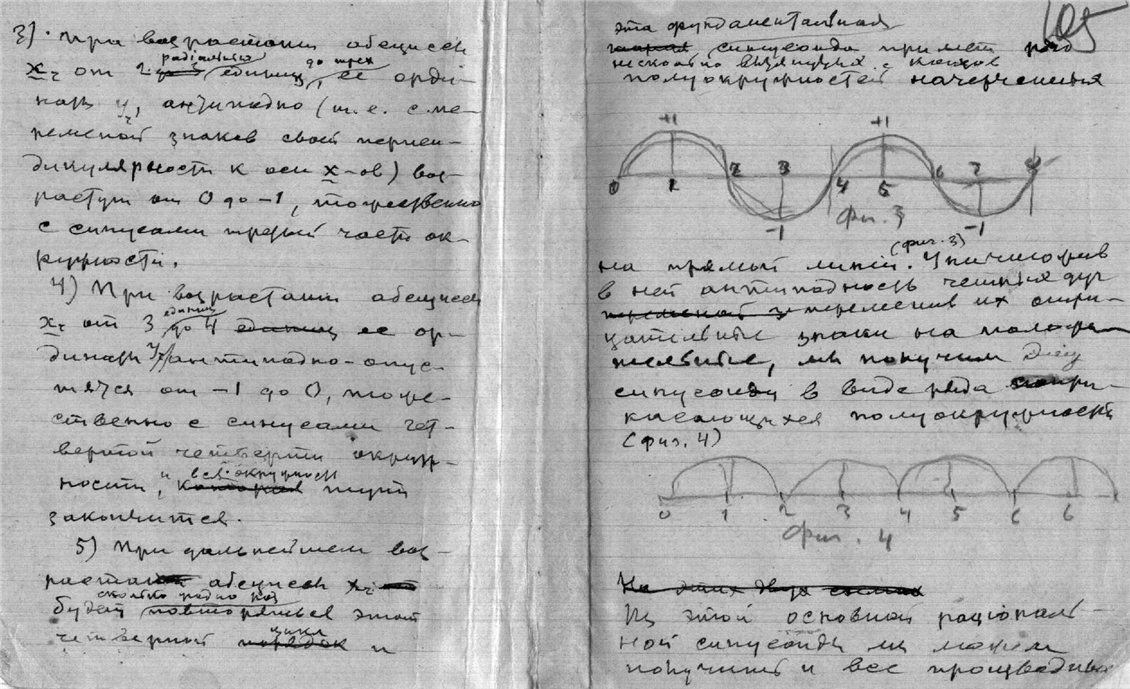 3) При возрастании абсциссы
радіально до трех
x₂ от 2 единиц, ее орди-
наты y₂ антиподно (т. е. с пе-
ременой знаков своей перпен-
дикулярности к оси x-ов) воз-
растут от 0 до -1, тожественно
с синусами третьей части ок-
ружности.
4) При возрастании абсциссы
единиц
x₂ от 3 до 4 единиц ее ор-
динаты y₂ антиподно опус-
тятся от -1 до 0, тоже-
ственно с синусами чет-
вертой четверти окруж-
и вся окружность
ности, которая тут
закончится.
5) При дальнейшем воз-
растании абсциссы x₂
сколько угодно раз
будет повторяться этот
цикл
четверной порядок и
105
эта фундаментальная
синусоида примет
несколько с концов
полуокружностей начерченных
+1 +1
0 1 2 3 4 5 6 7 8
-1 -1
Фиг. 3
(фиг. 3)
на прямой линии. Уничтожив
в ней антиподность четных дуг
переменой переменив их отри-
цательные знаки на положи-
тельные, мы получим эту
синусоиду в виде ряда сопри-
касающихся полуокружностей
(фиг. 4)
0 1 2 3 4 5 6 6
Фиг. 4
На этих двух
Из этой основной раціональ-
ной синусоиды мы можем
получить и все производные